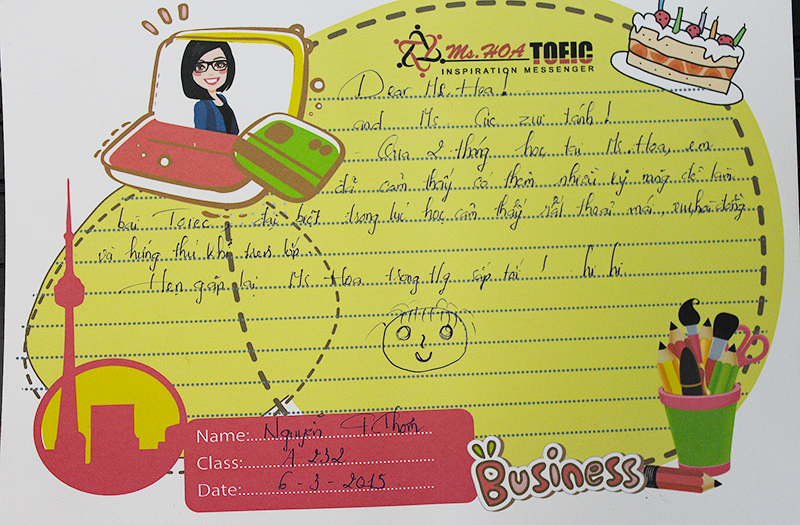 Ms. HOA TOEIC
INSPIRATION MESSENGER
Dear Ms. Hoa!
and Ms Cúc zui tánh!
- Qua 2 tháng học tại Ms Hoa, em
đã cảm thấy có thêm nhiều kỹ năng để làm
bài Toiec, đặc biệt trong lúc học cảm thấy rất thoải mái,
và hứng thú khi trên lớp.
Hẹn gặp lại Ms Hoa trong sắp tới! hi hi
Name: Nguyễn Thơm
Class: A 232
Date: 6-3-2015
Business